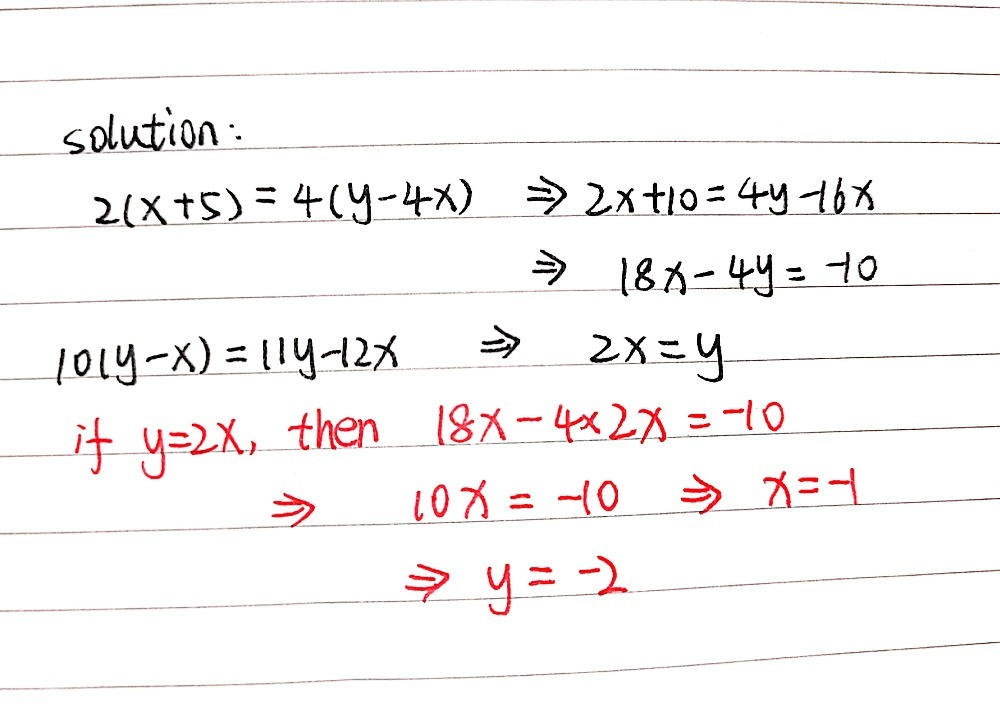 solution:
2(x+5)=4(y-4x) ⇒ 2x+10=4y-16x
⇒ 18x-4y=-10
10(y-x)=11y-12x ⇒ 2x=y
if y=2x, then 18x-4×2x=-10
⇒ 10x=-10 ⇒ x=-1
⇒ y=-2